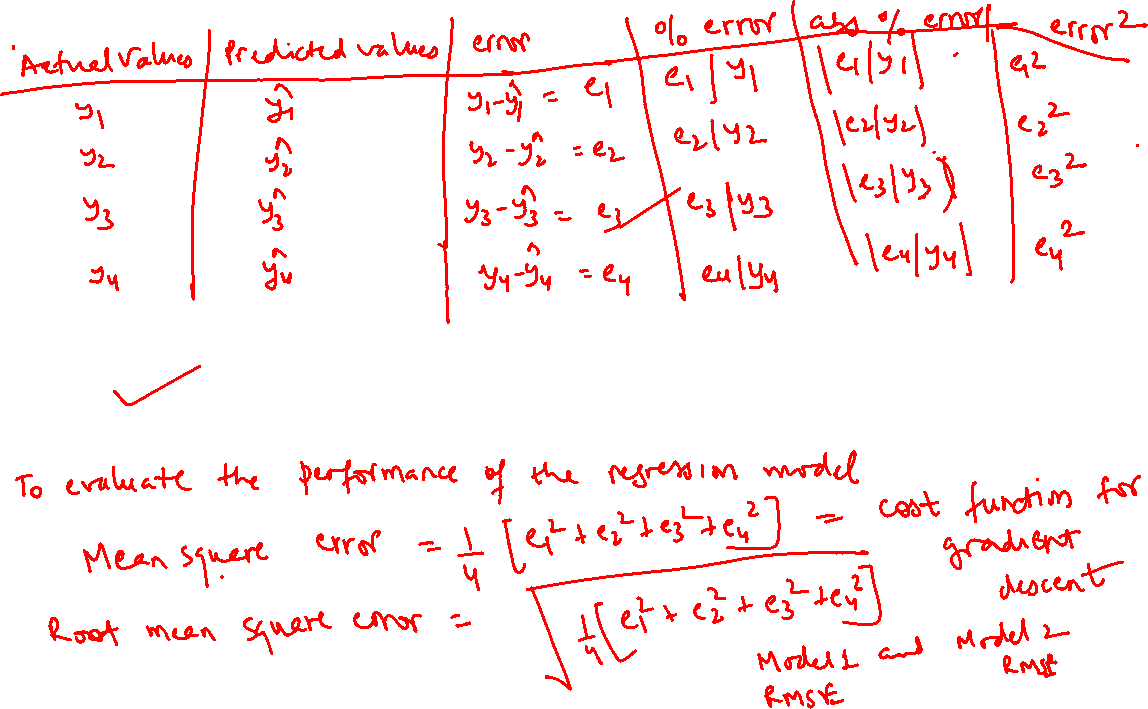 Actual Values | Predicted values | error | % error | abs % error | error²
y₁ | ŷ₁ | y₁-ŷ₁ = e₁ | e₁/y₁ | |e₁/y₁| | e₁²
y₂ | ŷ₂ | y₂-ŷ₂ = e₂ | e₂/y₂ | |e₂/y₂| | e₂²
y₃ | ŷ₃ | y₃-ŷ₃ = e₃ | e₃/y₃ | |e₃/y₃| | e₃²
y₄ | ŷ₄ | y₄-ŷ₄ = e₄ | e₄/y₄ | |e₄/y₄| | e₄²
To evaluate the performance of the regression model
Mean square error = 1/4 [e₁²+e₂²+e₃²+e₄²] = cost function for
gradient
descent
Root mean square error = √1/4[e₁²+e₂²+e₃²+e₄²]
Model 1 and Model 2
RMSE RMSE